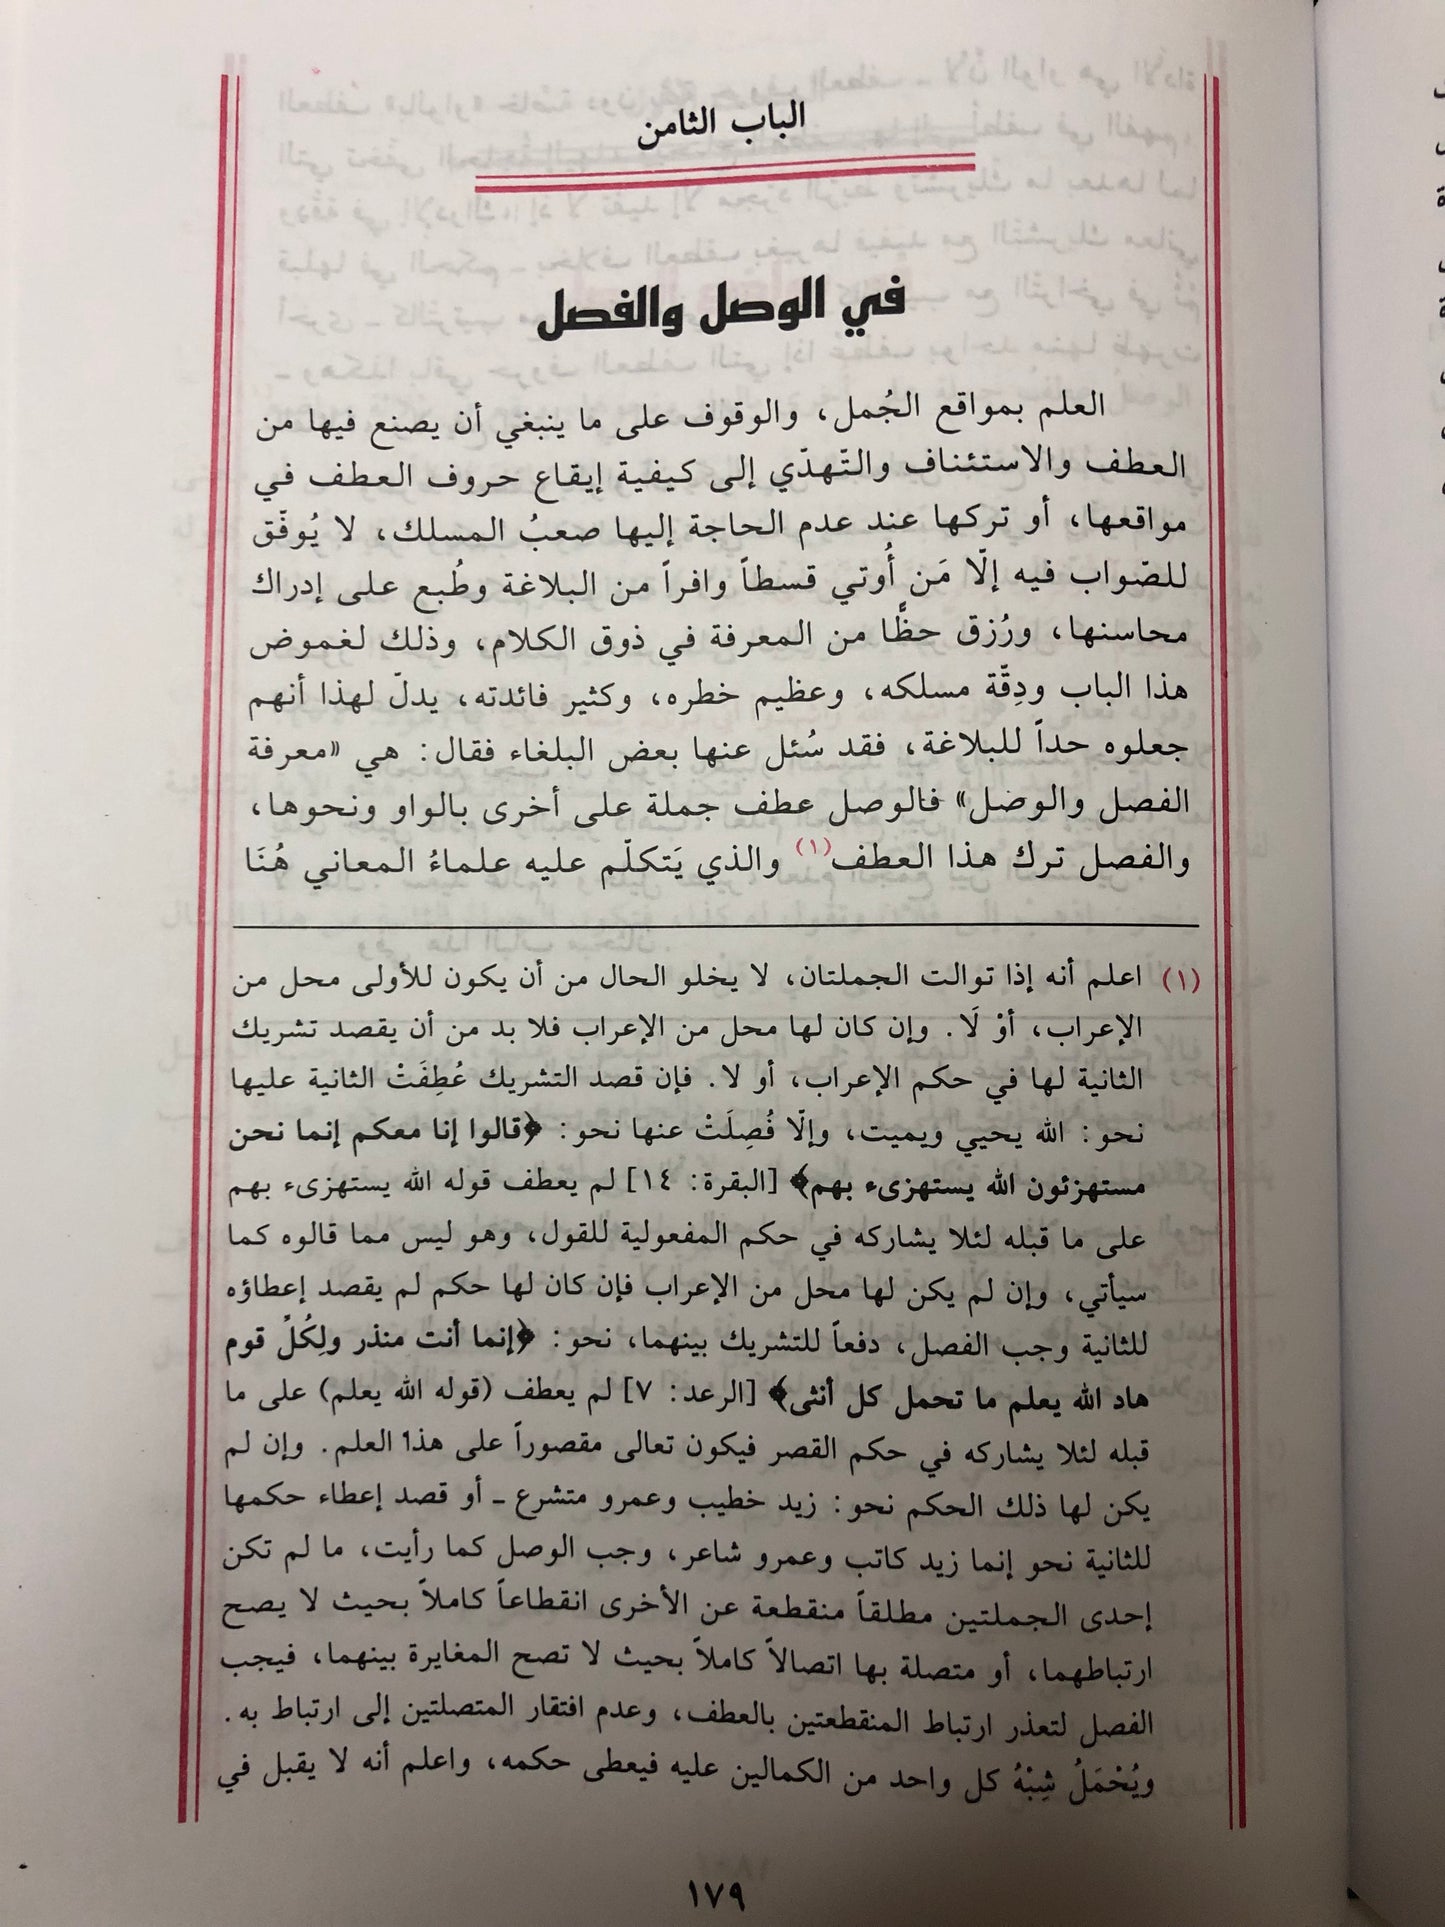 الباب الثامن
في الوصل والفصل
العلم بمواقع الجُمل، والوقوف على ما ينبغي أن يصنع فيها من
العطف والاستئناف والتّهدّي إلى كيفية إيقاع حروف العطف في
مواقعها، أو تركها عند عدم الحاجة إليها صعبُ المسلك، لا يُوفّق
للصّواب فيه إلّا مَن أُوتي قسطاً وافراً من البلاغة وطُبع على إدراك
محاسنها، ورُزق حظًّا من المعرفة في ذوق الكلام، وذلك لغموض
هذا الباب ودِقّة مسلكه، وعظيم خطره، وكثير فائدته، يدلّ لهذا أنهم
جعلوه حداً للبلاغة، فقد سُئل عنها بعض البلغاء فقال: هي «معرفة
الفصل والوضل» فالوصل عطف جملة على أخرى بالواو ونحوها،
والفصل ترك هذا العطف(١) والذي يَتكلّم عليه علماءُ المعاني هُنَا
(١) اعلم أنه إذا توالت الجملتان، لا يخلو الحال من أن يكون للأولى محل من
الإعراب، أوْ لَا. وإن كان لها محل من الإعراب فلا بد من أن يقصد تشريك
الثانية لها في حكم الإعراب، أو لا. فإن قصد التشريك عُطِفَتْ الثانية عليها
نحو: الله يحيي ويميت، وإلّا فُصِلَتْ عنها نحو: ﴿قالوا إنا معكم إنما نحن
مستهزئون الله يستهزىء بهم﴾ [البقرة: ١٤] لم يعطف قوله الله يستهزىء بهم
على ما قبله لئلا يشاركه في حكم المفعولية للقول، وهو ليس مما قالوه كما
سيأتي، وإن لم يكن لها محل من الإعراب فإن كان لها حكم لم يقصد إعطاؤه
للثانية وجب الفصل، دفعاً للتشريك بينهما، نحو: ﴿إنما أنت منذر ولِكُلِّ قوم
هاد الله يعلم ما تحمل كل أنثى﴾ [الرعد: ٧] لم يعطف (قوله الله يعلم) على ما
قبله لئلا يشاركه في حكم القصر فيكون تعالى مقصوراً على هذا العلم. وإن لم
يكن لها ذلك الحكم نحو: زيد خطيب وعمرو متشرع ـ أو قصد إعطاء حكمها
للثانية نحو إنما زيد كاتب وعمرو شاعر، وجب الوصل كما رأيت، ما لم تكن
إحدى الجملتين مطلقاً منقطعة عن الأخرى انقطاعاً كاملاً بحيث لا يصح
ارتباطهما، أو متصلة بها اتصالاً كاملاً بحيث لا تصح المغايرة بينهما، فيجب
الفصل لتعذر ارتباط المنقطعتين بالعطف، وعدم افتقار المتصلتين إلى ارتباط به.
ويُحْمَلُ شِبْهُ كل واحد من الكمالين عليه فيعطى حكمه، واعلم أنه لا يقبل في
١٧٩